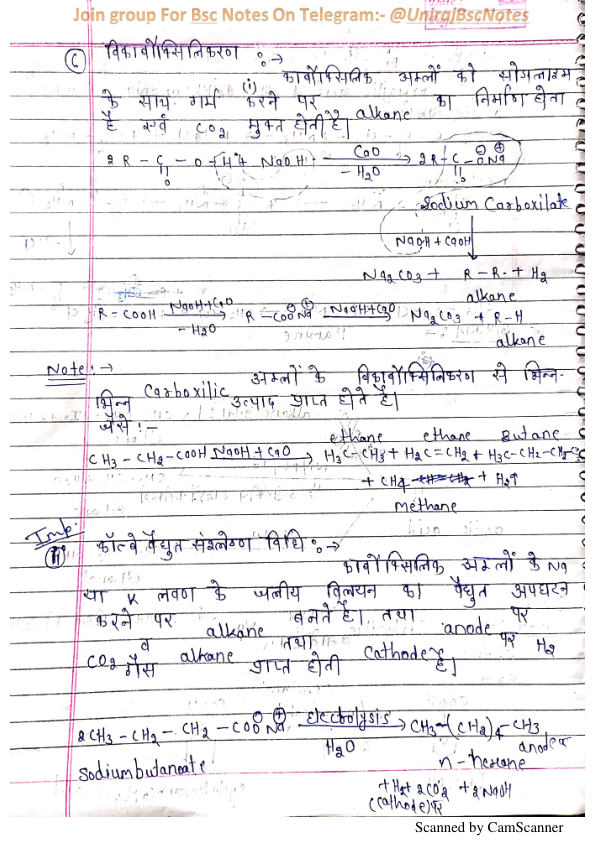 Join group For Bsc Notes On Telegram:- @UnirajBscNotes
(6) विकार्बोक्सिलिकरण :→
(i) कार्बोक्सिलिक अम्लों को सोडालाइम
के साथ गर्म करने पर alkane का निर्माण होता
है एवं CO2 मुक्त होती है।
2R-C-O-H + NaOH CaO → 2R-C-O⊖Na⊕
|| O -H2O || O
Sodium Carboxilate
NaOH + CaOH ↓
Na2CO3 + R-R + H2
alkane
R-COOH NaOH+CaO → R-COO⊖Na⊕ NaOH+CaO → Na2CO3 + R-H
-H2O
alkane
Note :→ Carboxilic अम्लों के विकार्बोक्सिलिकरण से भिन्न-
भिन्न उत्पाद प्राप्त होते है।
जैसे :-
ethane ethane Butane
CH3-CH2-COOH NaOH+CaO → H3C-CH3 + H2C=CH2 + H3C-CH2-CH2-
+ CH4 + H2↑
methane
Imp.
(ii) कॉल्वे वैधुत संश्लेषण विधि :→
कार्बोक्सिलिक अम्लों के Na
या K लवण के जलीय विलयन का वैधुत अपघटन
करने पर alkane बनते है। तथा anode पर
CO2 व alkane तथा cathode पर H2
गैस प्राप्त होती है।
2CH3-CH2-CH2-COO⊖Na⊕ Electrolysis → CH3-(CH2)4-CH3
H2O
anode पर
Sodium butanoate
n-hexane
+H2+2CO2 +2NaOH
(cathode) पर
Scanned by CamScanner